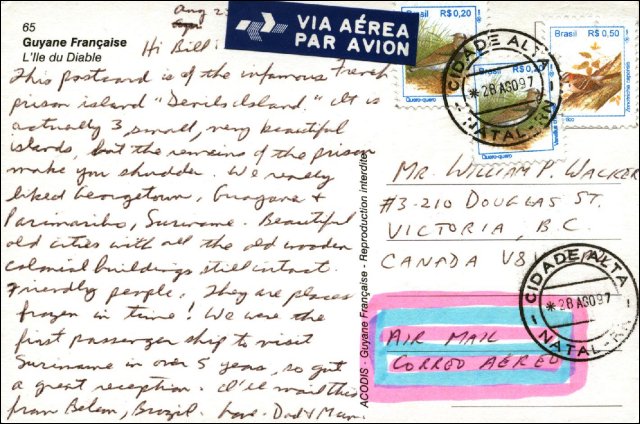 65
Guyane Française
L'Ile du Diable
Aug 23
Hi Bill:
This postcard is of the infamous French
prison island "Devils Island." It is
actually 3 small, very beautiful
islands, but the remains of the prison
make you shudder. We really
liked Georgetown, Guayana &
Parimaribo, Suriname. Beautiful
old cities with all the old wooden
colonial buildings still intact.
Friendly people, They are places
frozen in time! We were the
first passenger ship to visit
Suriname in over 5 years, so got
a great reception. I'll mail this
from Belem, Brazil. Love - Dad & Mum.
VIA AÉREA
PAR AVION
Brasil R$ 0,20
Quero-quero
Brasil R$ 0,20
Quero-quero
Brasil R$ 0,50
CIDADE ALTA
*28 AGO 97
NATAL-RN
ACODIS - Guyane Française - Reproduction interdite
MR. WILLIAM P. WALKER
#3-210 DOUGLAS ST.
VICTORIA, B.C.
CANADA V8V
CIDADE ALTA
*28 AGO 97
NATAL-RN
AIR MAIL
CORREO AÉREO